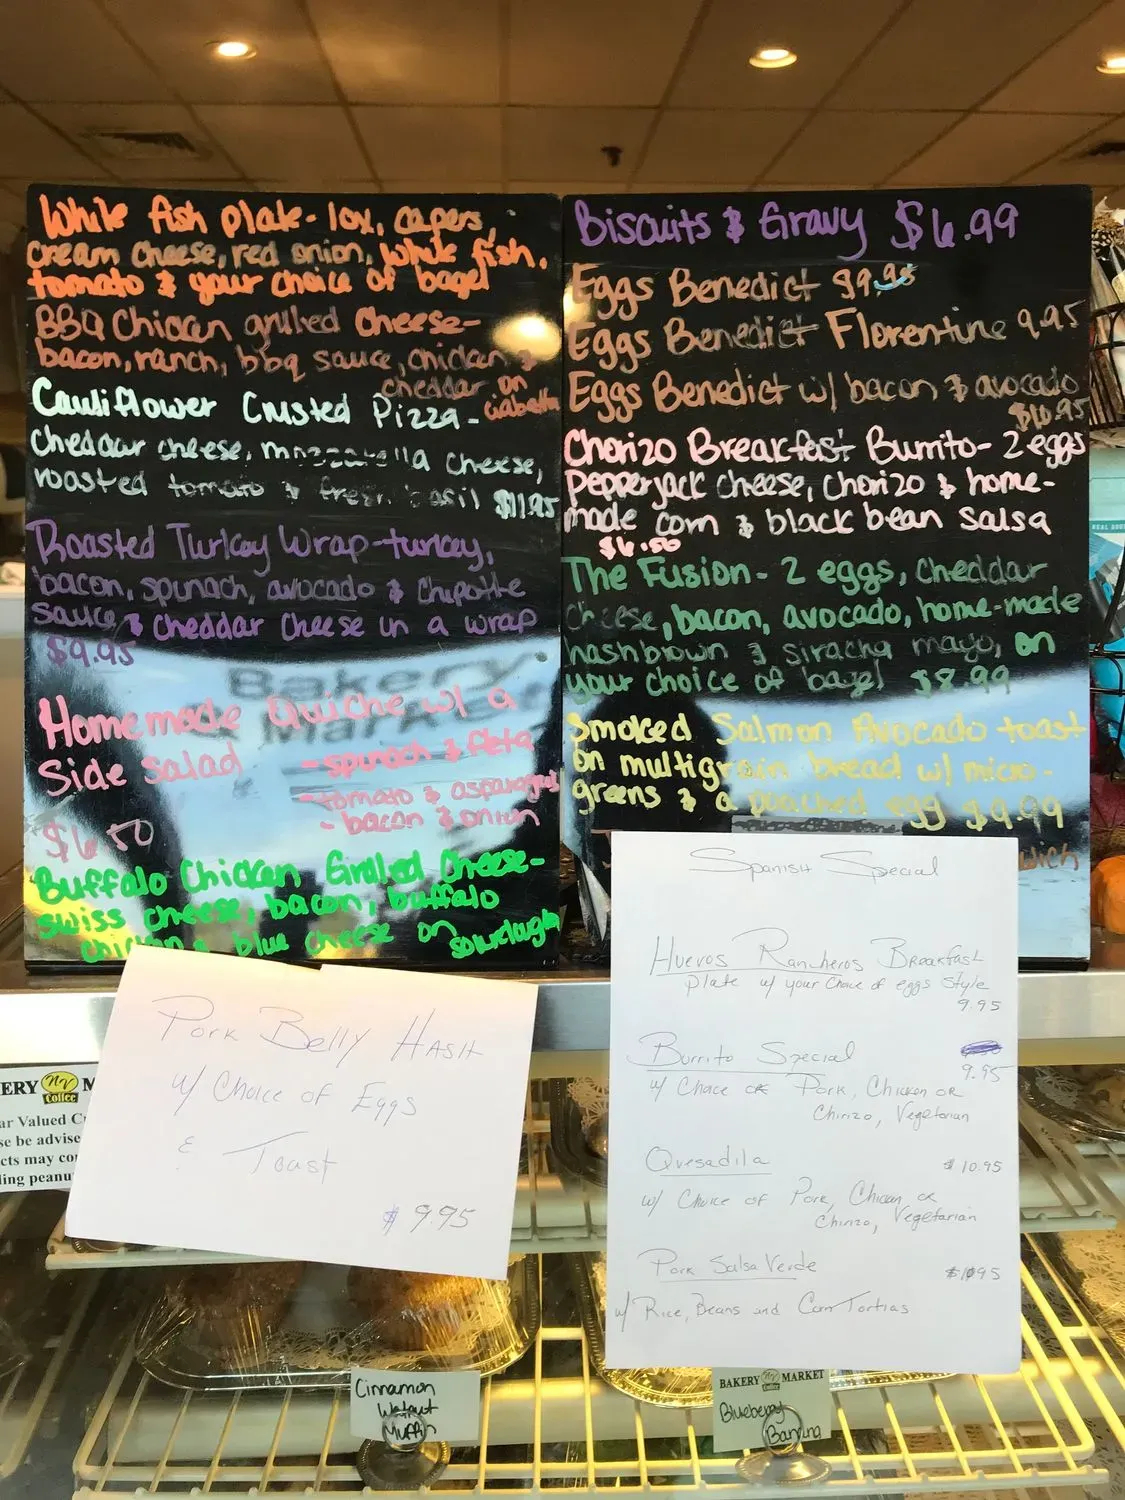 White fish plate - lox, capers,
cream cheese, red onion, white fish,
tomato & your choice of bagel
BBQ Chicken grilled Cheese-
bacon, ranch, bbq sauce, chicken &
cheddar on
ciabatta
Cauliflower Crusted Pizza-
cheddar cheese, mozzarella cheese,
roasted tomato & fresh basil $11.95
Roasted Turkey Wrap-turkey,
bacon, spinach, avocado & chipotle
sauce & cheddar cheese in a wrap
$9.95
Homemade Quiche w/ a
Side salad
- spinach & feta
- tomato & asparagus
- bacon & onion
$6.50
Buffalo Chicken Grilled Cheese-
swiss cheese, bacon, buffalo
chicken & blue cheese on sourdough
Biscuits & Gravy $6.99
Eggs Benedict $9.95
Eggs Benedict Florentine 9.95
Eggs Benedict w/ bacon & avocado
$10.95
Chorizo Breakfast Burrito- 2 eggs
pepperjack cheese, chorizo & home-
made corn & black bean salsa
$6.50
The Fusion- 2 eggs, cheddar
cheese, bacon, avocado, home-made
hashbrown & siracha mayo, on
your choice of bagel $8.99
Smoked Salmon Avocado toast
on multigrain bread w/ micro-
greens & a poached egg $9.99
wich
Bakery
Market
Spanish Special
Huevos Rancheros Breakfast
plate w/ your Choice of eggs style
9.95
Burrito Special
9.95
w/ Choice of Pork, Chicken or
Chirizo, Vegetarian
Quesadila $10.95
w/ Choice of Pork, Chicken or
Chirizo, Vegetarian
Pork Salsa Verde
w/ Rice, Beans and Corn Tortias
Pork Belly Hash
w/ Choice of Eggs
& Toast
$9.95
ERY NV Coffee M
ar Valued C
se be advise
cts may co
ling peanu
Cinnamon
Walnut
Muffin
BAKERY NV Coffee MARKET
Blueberry